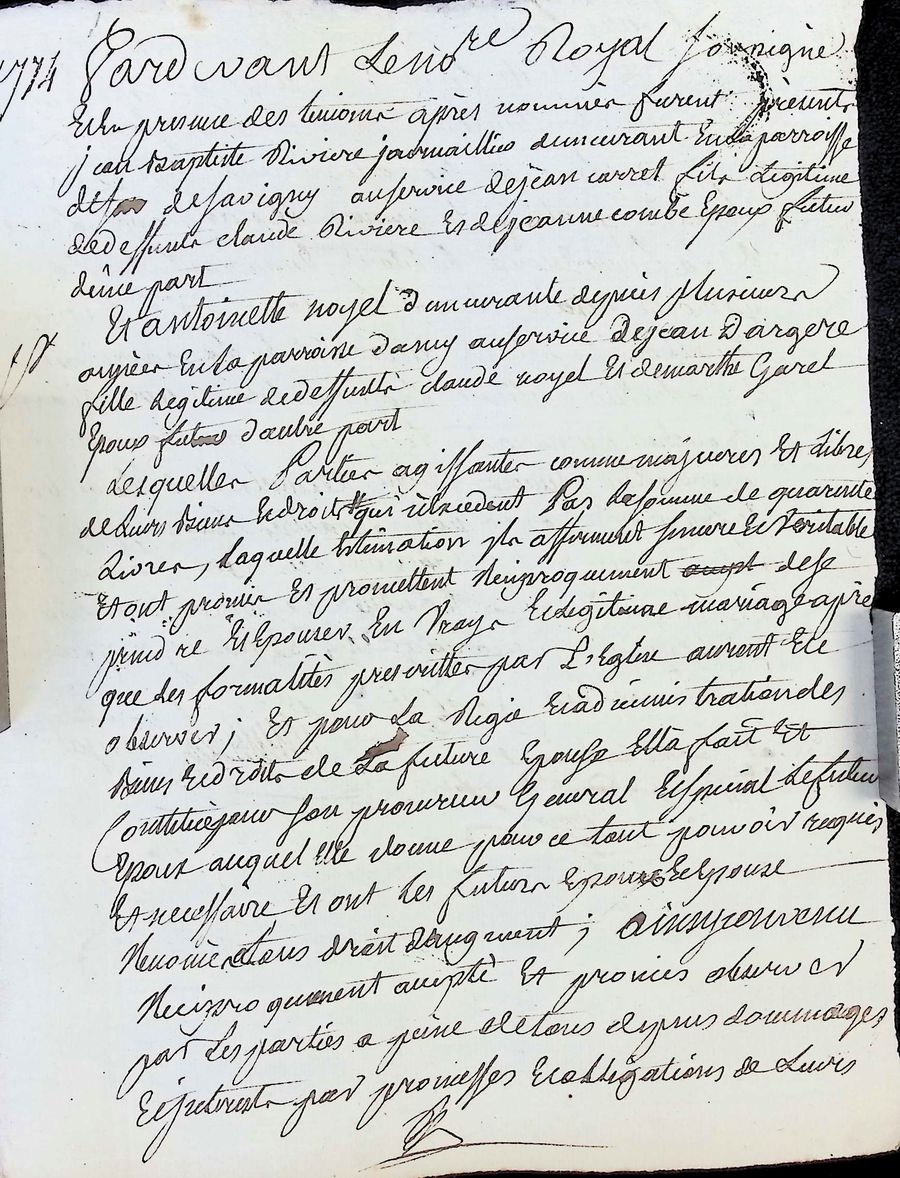 1774 Pardevant Le no.re Royal soussigné
Et En presence des temoins après nommés furent présents
jean Baptiste Riviere journaillier demeurant En la parroisse
de savigny au service de jean carret fils Legitime
de deffunts claude Riviere Et de jeanne combe Epoux futur
d'une part
Et antoinette noyel demeurante depuis plusieurs
années En la parroisse dancy au service de jean Dargere
fille Légitime de deffuntts claude noyel Et de marthe Garel
Epoux future d'autre part
Lesquelles Parties agissantes comme majeures Et Libres
de Leurs biens Et droits qui n'Excedent Pas La somme de quarente
Livres, Laquelle Estimation ils affirment sincere Et Veritable
Et ont promis Et promettent Reciproquement de se
prendre Et Epouser En Vraye Et Legitime mariage après
que Les formalités prescrittes par L'Eglise auront Eté
observés; Et pour La Regie Et administration des
Biens Et droits de La future Epouse Elle fait Et
Constitue pour son procureur General Et special Le futur
Epoux auquel Elle donne pour ce tout pouvoir requis
Et necessaire Et ont Les futurs Epoux Et Epouse
Renoncé a tous droit d'augment; ainsy convenu
Reciproquement accepté Et promis observer
par Les parties a peine de tous depens dommages
Et jnterets par promesses Et obligations de Leurs